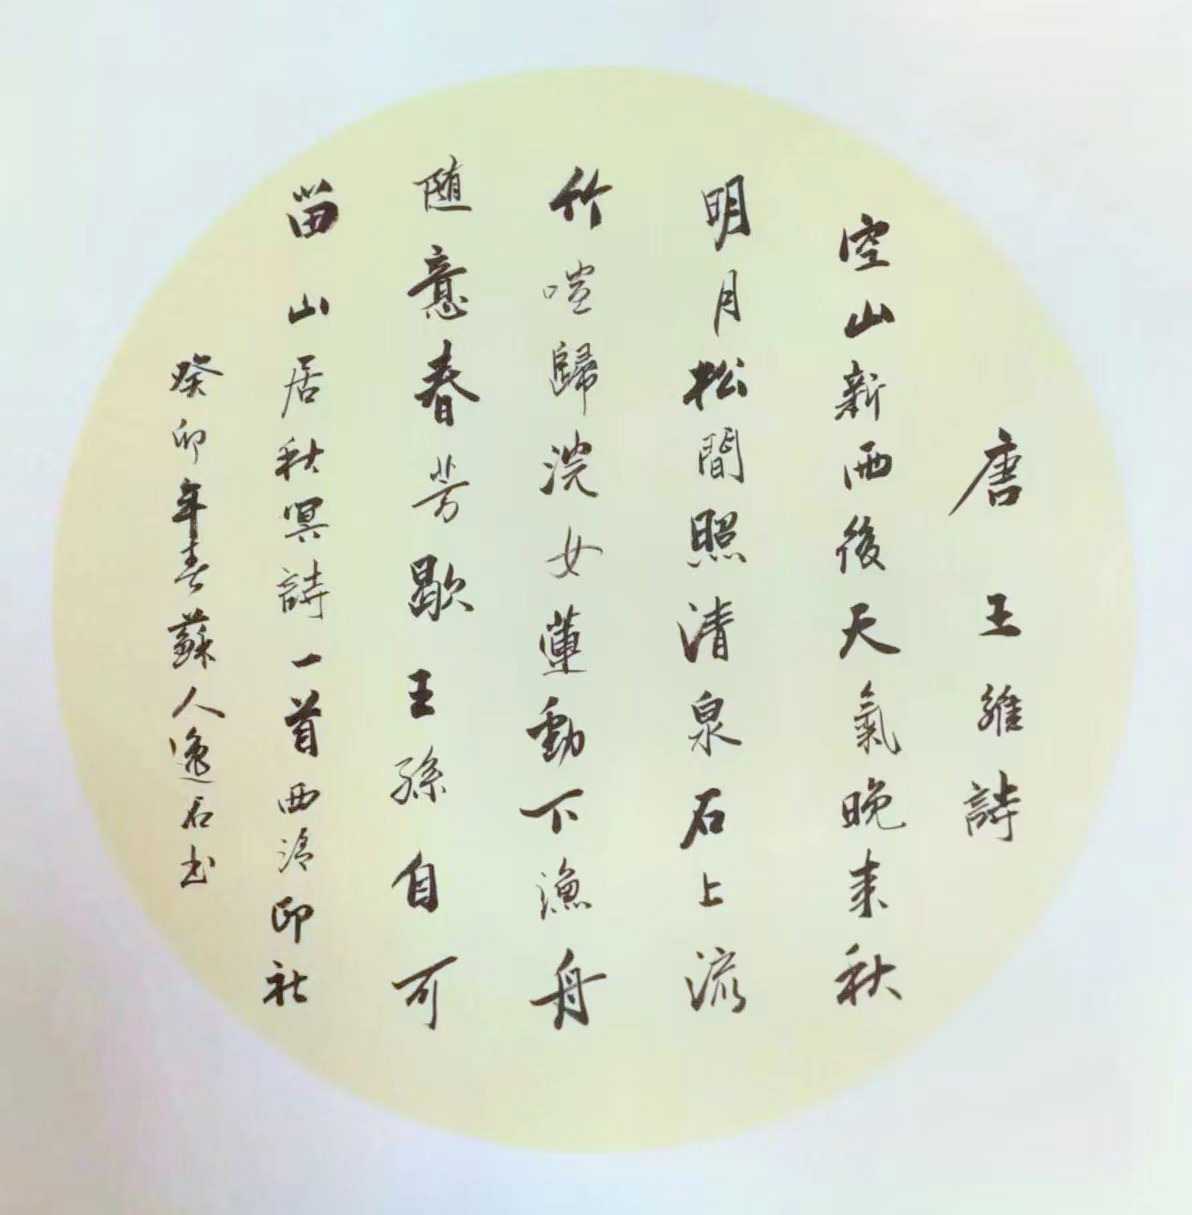 唐王維詩
空山新雨後天氣晚来秋
明月松間照清泉石上流
竹喧歸浣女蓮動下漁舟
随意春芳歇王孫自可
留山居秋冥詩一首西泠印社
癸卯年春蘇人逸石书